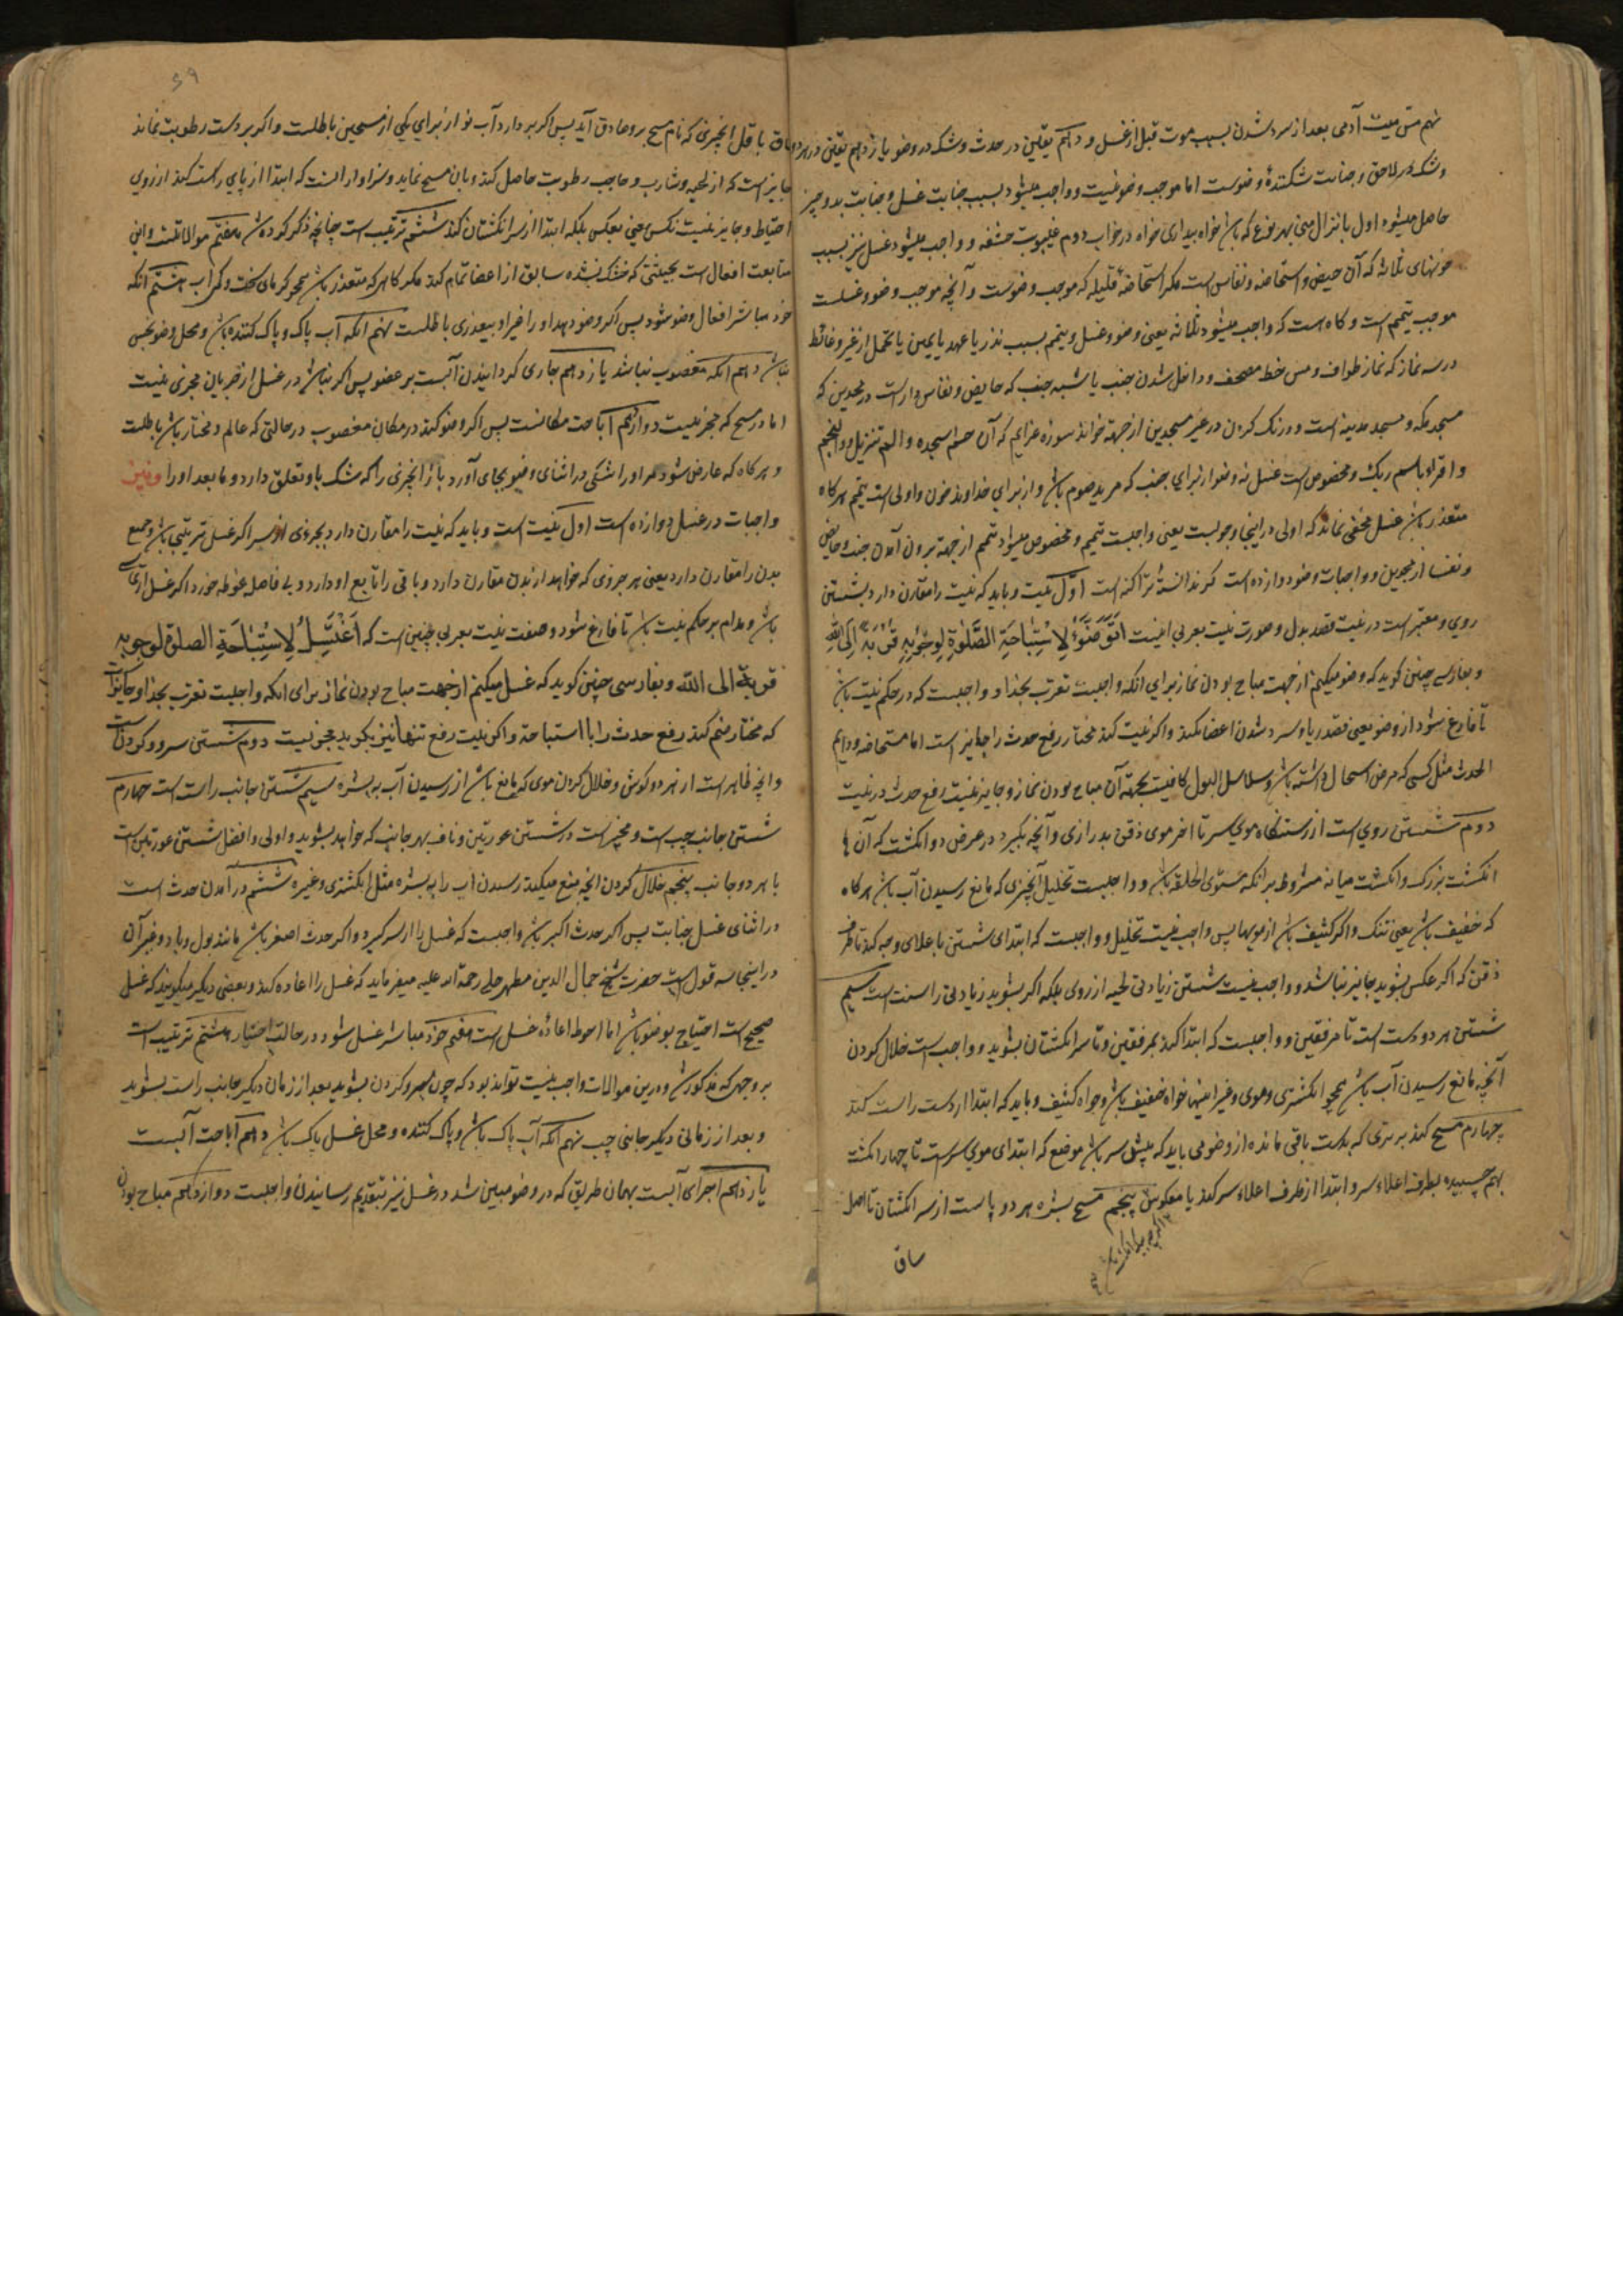 نهم مس میت آدمی بعد از سرد شدن بسبب موت قبل از غسل و دهم یقین در حدث و شک در وضو یازدهم یقین در هردو
و شک در لاحق و جنابت شکنندهٔ وضوست اما موجب وضو نیست و واجب میشود بسبب جنابت غسل و جنابت بدو چیز
حاصل میشود اول بانزال منی بهر نوع که باشد خواه بیداری خواه در خواب دوم غیبوبت حشفه و واجب میشود غسل نیز بسبب
خونهای ثلاثه که آن حیض و استحاضه و نفاس است مگر استحاضهٔ قلیله که موجب وضوست و آنچه موجب وضو و غسلست
موجب تیمم است و گاه است که واجب میشود ثلاثه یعنی وضو و غسل و تیمم بسبب نذر یا عهد یا یمین یا تحمل از غیر و غائط
در سه نماز که نماز طواف و مس خط مصحف و داخل شدن جنب یا شبه جنب که حایض و نفاس دار است در مسجدین که
مسجد مکه و مسجد مدینه است و درنگ کردن در غیر مسجدین از جهة خواندن سوره عزایم که آن حم سجده و الم تنزیل و والنجم
و اقراء باسم ربک و مخصوص است غسل نه وضو از برای جنب که مرید صوم باشد و از برای خداوند خون و اولی است تیمم هرگاه
متعذر باشد غسل مخفی نماند که اولی در اینجا وجوبست یعنی واجبست تیمم و مخصوص میشود تیمم از جهة برون آمدن جنب و حایض
و نفسا از مسجدین و واجبات وضو دوازده است اول نیت و باید که نیت را مقارن دارد بشستن
روی و معتبر است در نیت قصد بدل و صورت نیت بعربی اینست اَتَوَضَّؤُ لِاِسْتِبَاحَةِ الصَّلٰوةِ لِوُجُوبِهِ قُرْبَةً اِلَی اللهِ
و بفارسی چنین گوید که وضو میکنم از جهت مباح بودن نماز برای انکه واجبست تقرب بخدا و واجبست که در حکم نیت باشد
تا فارغ شود از وضو یعنی قصد ریا و سرد شدن اعضا نکند و اگر نیت کند مختار رفع حدث را جایز است اما مستحاضه و دایم
الحدث مثل کسی که مرض اسهال داشته باشد و سلاسل البول کافیست بجهة آن مباح بودن نماز و جایز نیست رفع حدث در نیت
دوم شستن روی است از رستنگاه موی سر تا اخر موی ذقن بدرازی و آنچه بگیرد در عرض دو انگشت که آن ها
انگشت بزرگ و انگشت میانه مشروط بر انکه مستوی الخلقه باشد و واجبست تخلیل آنچیزی که مانع رسیدن آب باشد هرگاه
که خفیف باشد یعنی تنک و اگر کثیف باشد از مویها پس واجب نیست تخلیل و واجبست که ابتدای شستن باعلای وجه کند تا طرف
ذقن که اگر عکس بشوید جایز نباشد و واجب نیست شستن زیادتی لحیه از روی بلکه اگر بشوید زیادتی را سنت است سیم
شستن هر دو دست است تا مرفقین و واجبست که ابتدا کند بمرفقین و تا سر انگشتان بشوید و واجب است خلال کردن
آنچه مانع رسیدن آب باشد همچو انگشتری و موی و غیر اینها خواه خفیف باشد و خواه کثیف و باید که ابتدا از دست راست کند
چهارم مسح کند بر تری که بدست باقی مانده از وضو می باید که پیش سر باشد موضع که ابتدای موی سر است تا چهار انگشت
بهم چسبیده بطرف اعلاء سر و ابتدا از طرف اعلاء سر کند یا معکوس پنجم مسح بشره هر دو پا است از سر انگشتان تا اصل
ساق
۶۹
ساق باقل آنچیزی که نام مسح بر و صادق آید پس اگر بردارد آب نو از برای یکی از مسحین باطلست و اگر بر دست رطوبت نماند
جایز است که از لحیه و شارب و حاجب رطوبت حاصل کند و بان مسح نماید و سزاوار انست که ابتدا از پای راست کند از روی
احتیاط و جایز نیست نکس یعنی بعکس بلکه ابتدا از سر انگشتان کند ششم ترتیب است چنانچه ذکر کرده شد هفتم موالاتست و این
متابعت افعال است بحیثیتی که خشک نشده سابق از اعضا تمام کند مگر گاهی که متعذر باشد همچو گرمای سخت و کم آب هشتم انکه
خود مباشر افعال وضو شود پس اگر وضو دهد او را غیر او بیعذری باطلست نهم انکه آب پاک و پاک کننده باشد و محل وضو نجس
نباشد دهم انکه مغصوب نباشد یازدهم جاری گردانیدن آبست بر عضو پس اگر نباشد در غسل از جریان مجزی نیست
اما در مسح که مجز نیست دوازدهم اباحت مکانست پس اگر وضو کند در مکان مغصوب در حالتی که عالم و مختار باشد باطلست
و هرگاه که عارض شود مر او را شکی در اثنای وضو بجای آورد باز آنچیزی را که شک باو تعلق دارد و ما بعد او را
واجبات در غسل دوازده است اول نیت است و باید که نیت را مقارن دارد بجزوی از سر اگر غسل ترتیبی باشد و جمیع
بدن را مقارن دارد یعنی هر جزوی که خواهد از بدن مقارن دارد و باقی را تابع او دارد و بی فاصله غوطه خورد اگر غسل ارتماسی
باشد و مدام بر حکم نیت باشد تا فارغ شود و صفت نیت بعربی چنین است که اَغْتَسِلُ لِاِسْتِبَاحَةِ الصلوة لوجوبه
قربة الی الله و بفارسی چنین گوید که غسل میکنم از جهت مباح بودن نماز برای انکه واجبست تقرب بخدا و جایز است
که مختار ضم کند رفع حدث را با استباحة و اگر نیت رفع تنها نیز بگوید مجزیست دوم شستن سر و گردن است
و انچه ظاهر است از هر دو گوش و خلال کردن موی که مانع باشد از رسیدن آب به بشره سیم شستن جانب راست است چهارم
شستن جانب چپ است و مخیر است در شستن عورتین و ناف بهر جانب که خواهد بشوید و اولی و افضل شستن عورتین است
با هر دو جانب پنجم خلال کردن انچه منع میکند رسیدن اب را به بشره مثل انگشتری و غیره ششم در آمدن حدث است
در اثنای غسل جنابت پس اگر حدث اکبر باشد واجبست که غسل را از سر گیرد و اگر حدث اصغر باشد مانند بول و باد و غیر آن
در اینجا سه قول است حضرت شیخ جمال الدین مطهر حلی رحمة الله علیه میفرماید که غسل را اعاده کند و بعضی دیگر میگویند که غسل
صحیح است احتیاج بوضو باشد اما احوط اعادهٔ غسل است هفتم خود مباشر غسل شود در حالت اختیار هشتم ترتیب است
بر وجهی که مذکور شد و درین موالات واجب نیست تواند بود که چون سر و گردن بشوید بعد از زمان دیگر جانب راست بشوید
و بعد از زمانی دیگر جانبی چپ نهم انکه آب پاک باشد و پاک کننده و محل غسل پاک باشد دهم اباحت آبست
یازدهم اجرای آبست بهمان طریق که در وضو مبین شد در غسل نیز بتقدیم رسانیدن واجبست دوازدهم مباح بودن